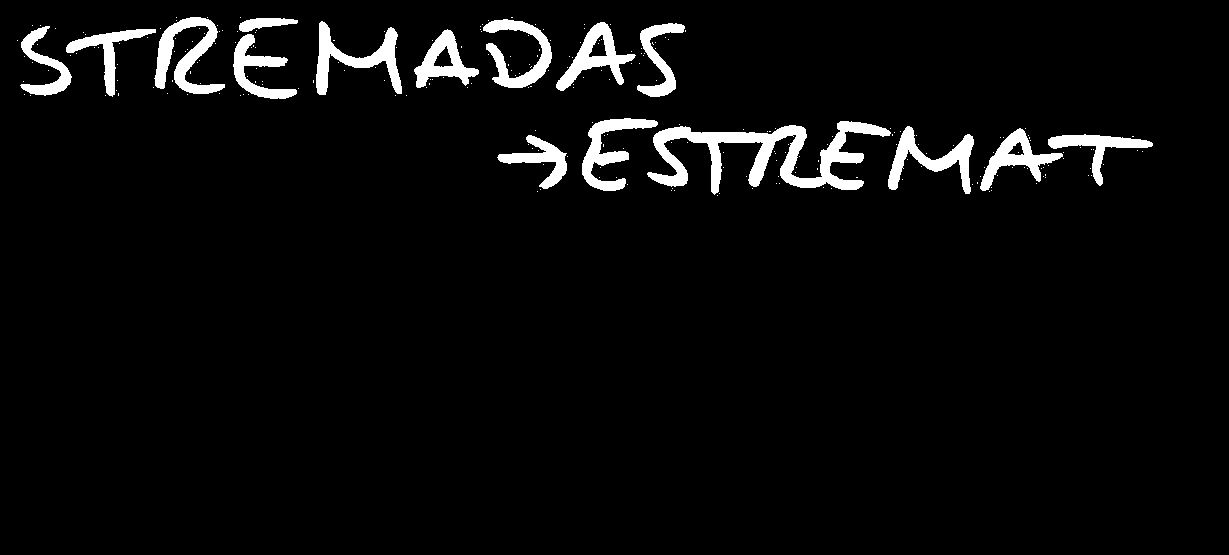 STREMADAS
→ESTREMAT